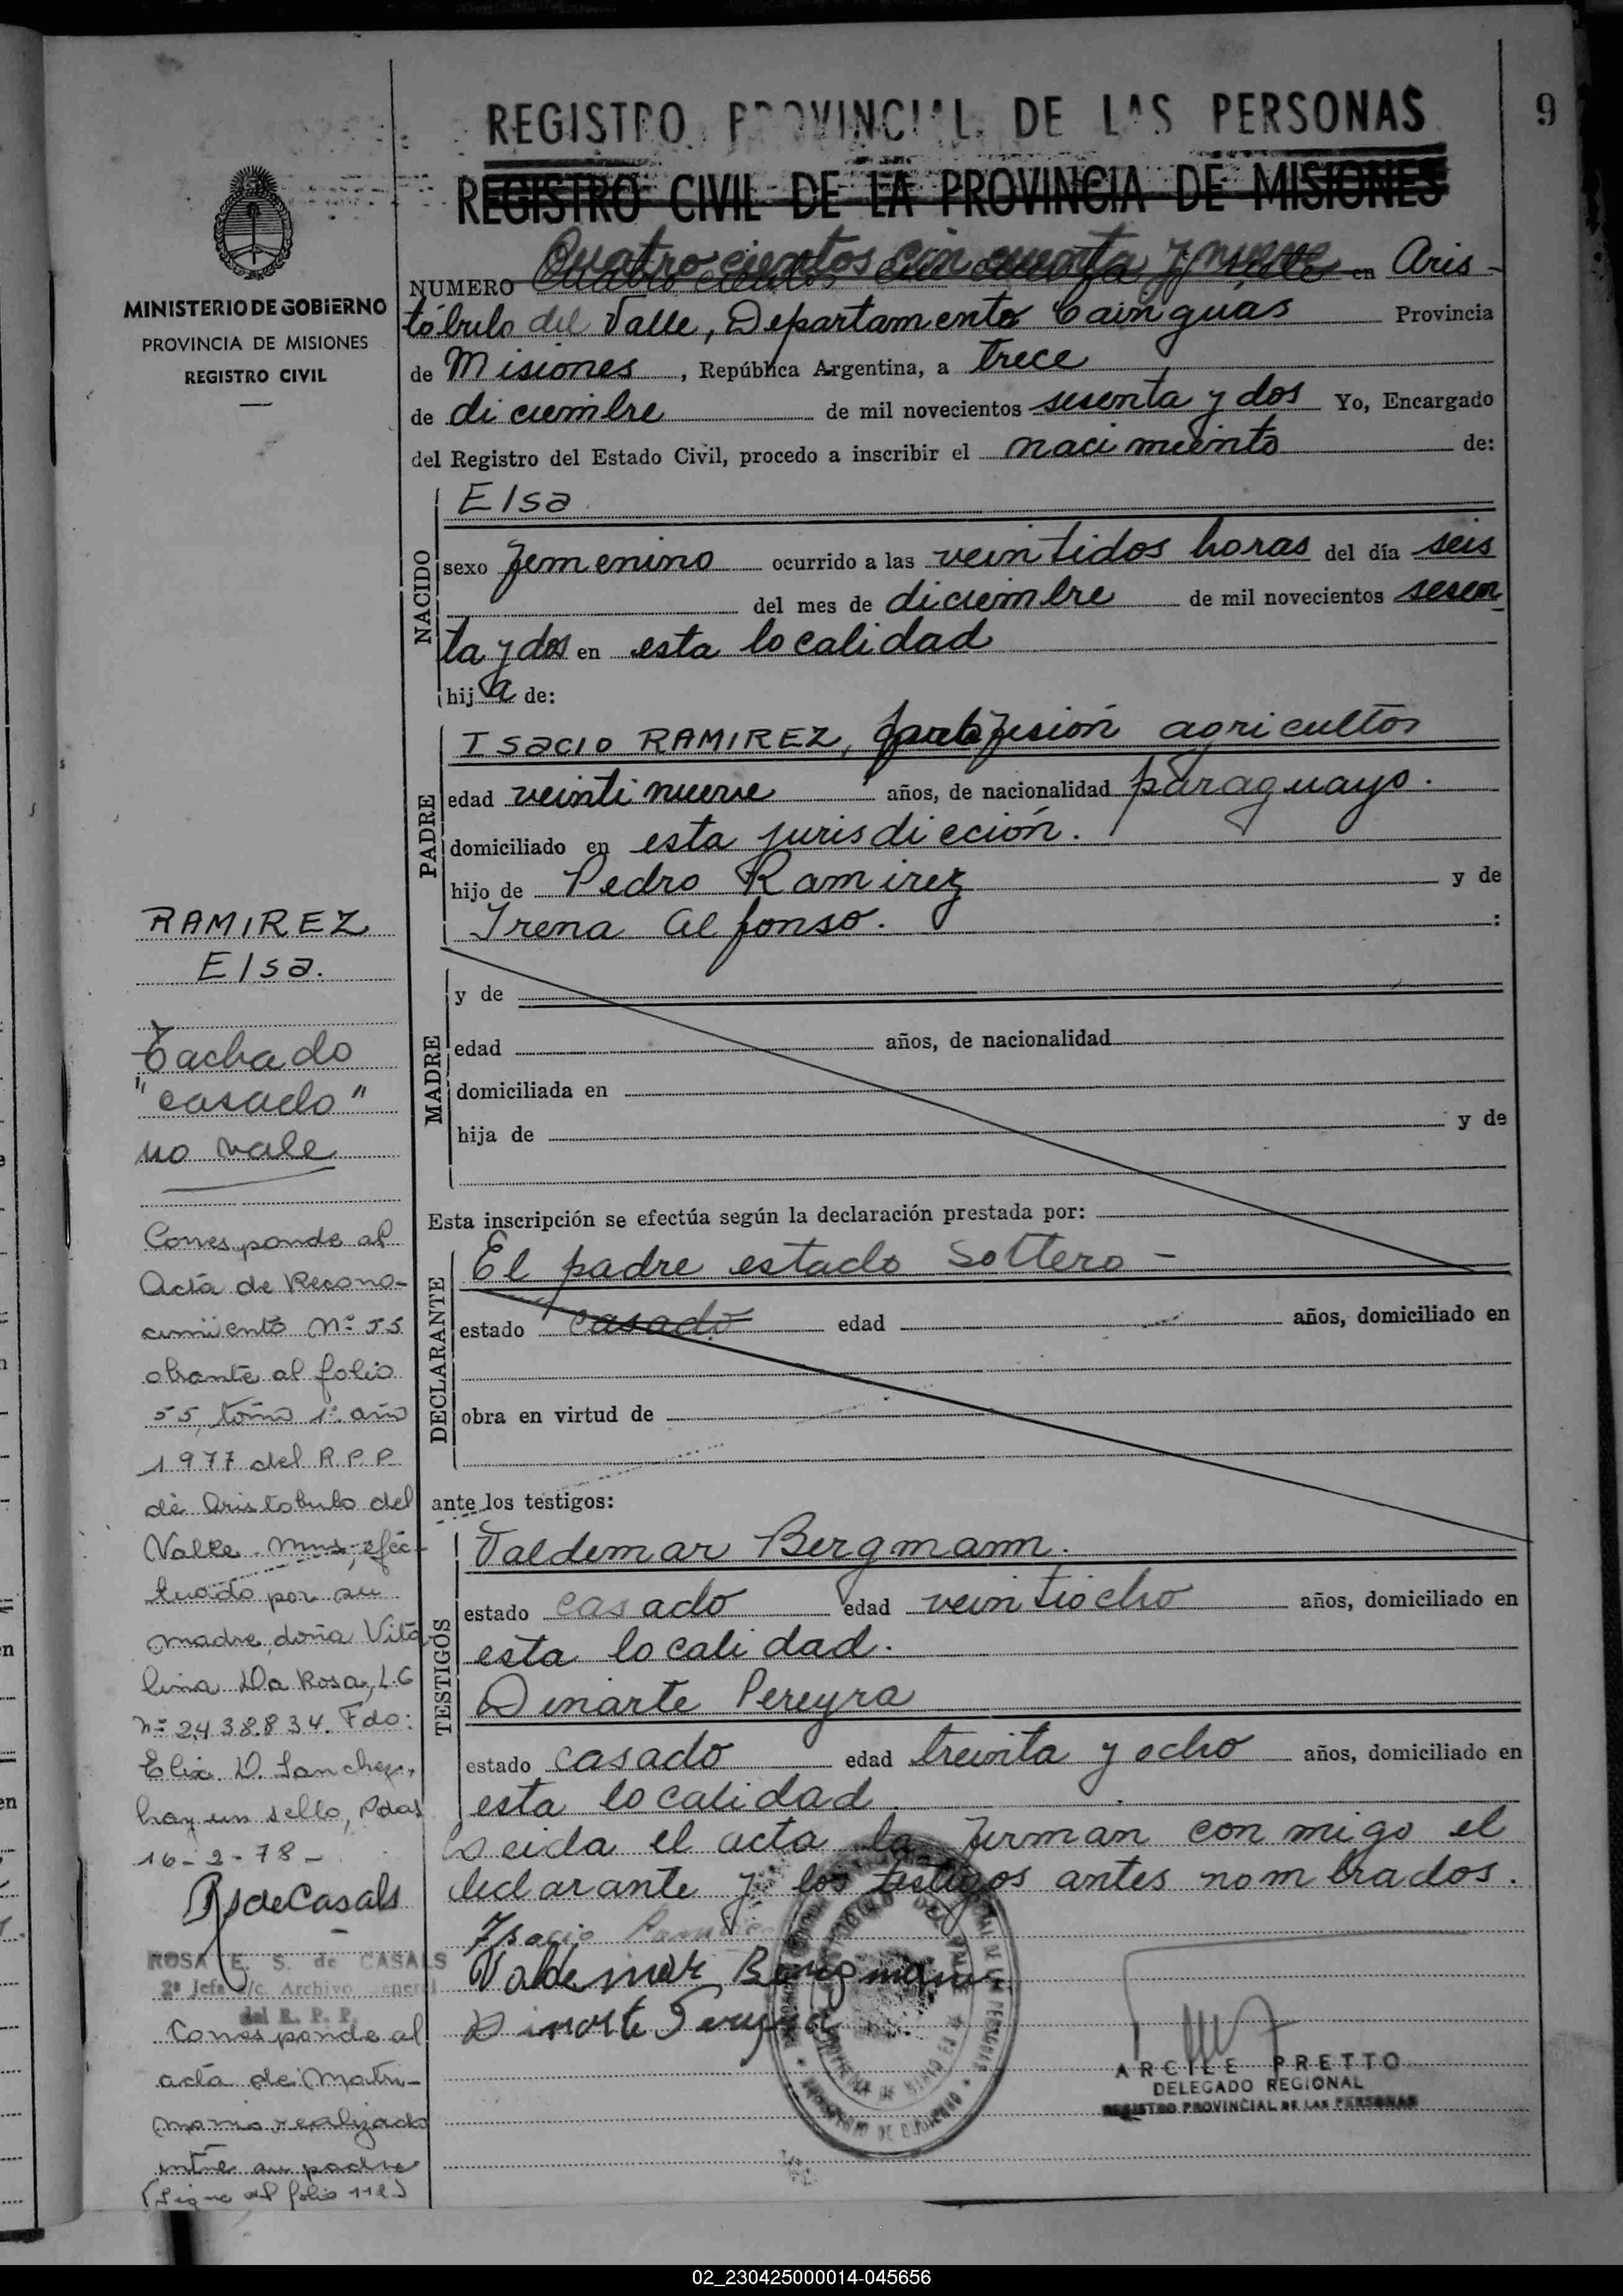 9
REGISTRO PROVINCIAL DE LAS PERSONAS
REGISTRO CIVIL DE LA PROVINCIA DE MISIONES
MINISTERIO DE GOBIERNO
PROVINCIA DE MISIONES
REGISTRO CIVIL
NUMERO Cuatrocientos cincuenta y nueve en Aris-
tóbulo del Valle, Departamento Cainguas Provincia
de Misiones, República Argentina, a trece
de diciembre de mil novecientos sesenta y dos Yo, Encargado
del Registro del Estado Civil, procedo a inscribir el nacimiento de:
NACIDO
Elsa
sexo femenino ocurrido a las veintidos horas del día seis
del mes de diciembre de mil novecientos sesen
ta y dos en esta localidad
hija de:
PADRE
Isacio RAMIREZ, profesión agricultor
edad veintinueve años, de nacionalidad paraguayo.
domiciliado en esta jurisdicción.
hijo de Pedro Ramirez y de
Irena Alfonso. :
MADRE
y de
edad años, de nacionalidad
domiciliada en
hija de y de
Esta inscripción se efectúa según la declaración prestada por:
DECLARANTE
El padre estado Soltero -
estado casado edad años, domiciliado en
obra en virtud de
ante los testigos:
TESTIGOS
Valdemar Bergmann.
estado casado edad veintiocho años, domiciliado en
esta localidad.
Dinarte Pereyra
estado casado edad treinta y ocho años, domiciliado en
esta localidad
Leida el acta la firman conmigo el
declarante y los testigos antes nombrados.
Isacio Ramirez
Valdemar Bergmann
Dinarte Pereyra
ARCILE PRETTO
DELEGADO REGIONAL
REGISTRO PROVINCIAL DE LAS PERSONAS
RAMIREZ
Elsa.
Tachado
"casado"
no vale
Corresponde al
Acta de Recono-
cimiento Nº 55
obrante al folio
55, tomo 1º año
1977 del R.P.P.
de Aristobulo del
Valle. Mnes, efec-
tuado por su
madre doña Vita
lina Da Rosa, L.C
Nº 2.438.834. Fdo:
Elix D. Sanchez,
hay un sello, Pdas
16-2-78-
RsdeCasals
ROSA E. S. de CASALS
2ª Jefa a/c. Archivo General
del R. P. P.
Corresponde al
acta de Matri-
monio realizado
entre su padre
(Sigue al folio 112)
02_230425000014-045656